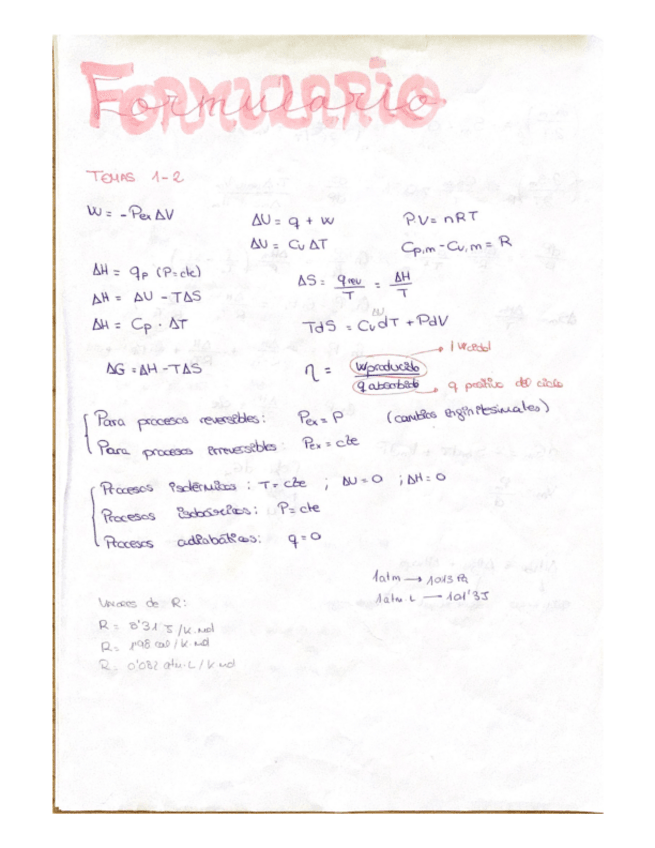 Formulario
TEMAS 1-2
W = -Pex ΔV
ΔU = q + w
PV = nRT
ΔU = Cv ΔT
Cp,m - Cv,m = R
ΔH = qp (P=cte)
ΔS = qrev/T = ΔH/T
ΔH = ΔU - TΔS
ΔH = Cp · ΔT
TdS = CvdT + PdV
dU
ΔG = ΔH - TΔS
η = Wproducido / qabsorbido
→ |Wtotal|
→ q positivo del ciclo
Para procesos reversibles: Pex = P (cambios infinitesimales)
Para procesos irreversibles: Pex = cte
Procesos isotérmicos: T = cte ; ΔU = 0 ; ΔH = 0
Procesos isobáricos: P = cte
Procesos adiabáticos: q = 0
1atm → 1013 Pa
1atm·L — 101'3J
Valores de R:
R = 8'31 J/K·mol
R = 1'98 cal/K·mol
R = 0'082 atm·L/K·mol